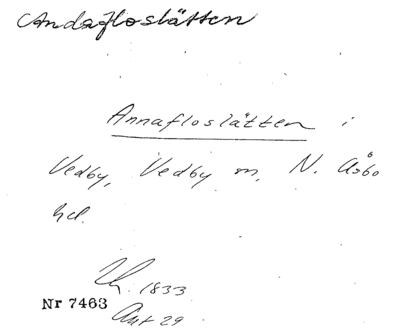 Andafloslätten
Annafloslätten i
Vedby, Vedby sn, N. Åsbo
hd.
1833
Nr 7463
Akt 29